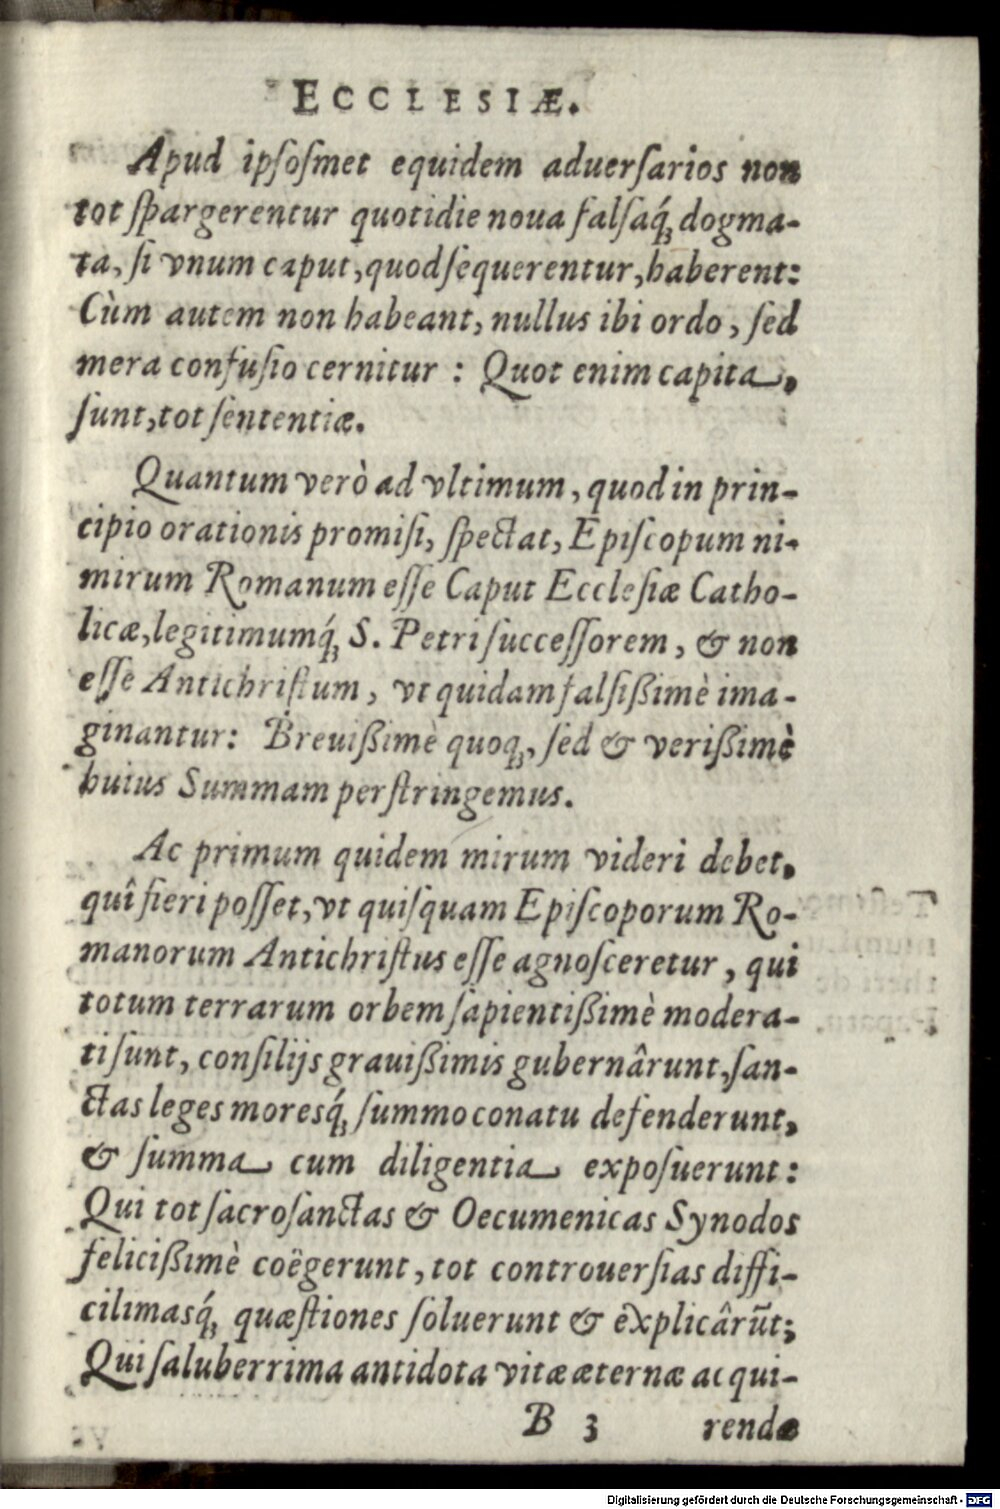 ECCLESIÆ.
Apud ipſoſmet equidem aduerſarios non
tot ſpargerentur quotidie noua falſaq́; dogma-
ta, ſi vnum caput, quod ſequerentur, haberent:
Cùm autem non habeant, nullus ibi ordo, ſed
mera confuſio cernitur : Quot enim capita,
ſunt, tot ſententiæ.
Quantum verò ad vltimum, quod in prin-
cipio orationis promiſi, ſpectat, Epiſcopum ni-
mirum Romanum eſſe Caput Eccleſiæ Catho-
licæ, legitimumq́; S. Petri ſucceſſorem, & non
eſſe Antichriſtum, vt quidam falſißimè ima-
ginantur: Breuißimè quoq;, ſed & verißimè
huius Summam perſtringemus.
Ac primum quidem mirum videri debet,
quî fieri poſſet, vt quiſquam Epiſcoporum Ro-
manorum Antichriſtus eſſe agnoſceretur, qui
totum terrarum orbem ſapientißimè modera-
ti ſunt, conſilijs grauißimis gubernârunt, ſan-
ctas leges moresq́; ſummo conatu defenderunt,
& ſumma cum diligentia expoſuerunt:
Qui tot ſacroſanctas & Oecumenicas Synodos
felicißimè coëgerunt, tot controuerſias diffi-
cilimasq́; quæſtiones ſoluerunt & explicârūt;
Qui ſaluberrima antidota vitæ æternæ acqui-
B 3 rendæ
Digitalisierung gefördert durch die Deutsche Forschungsgemeinschaft - DFG